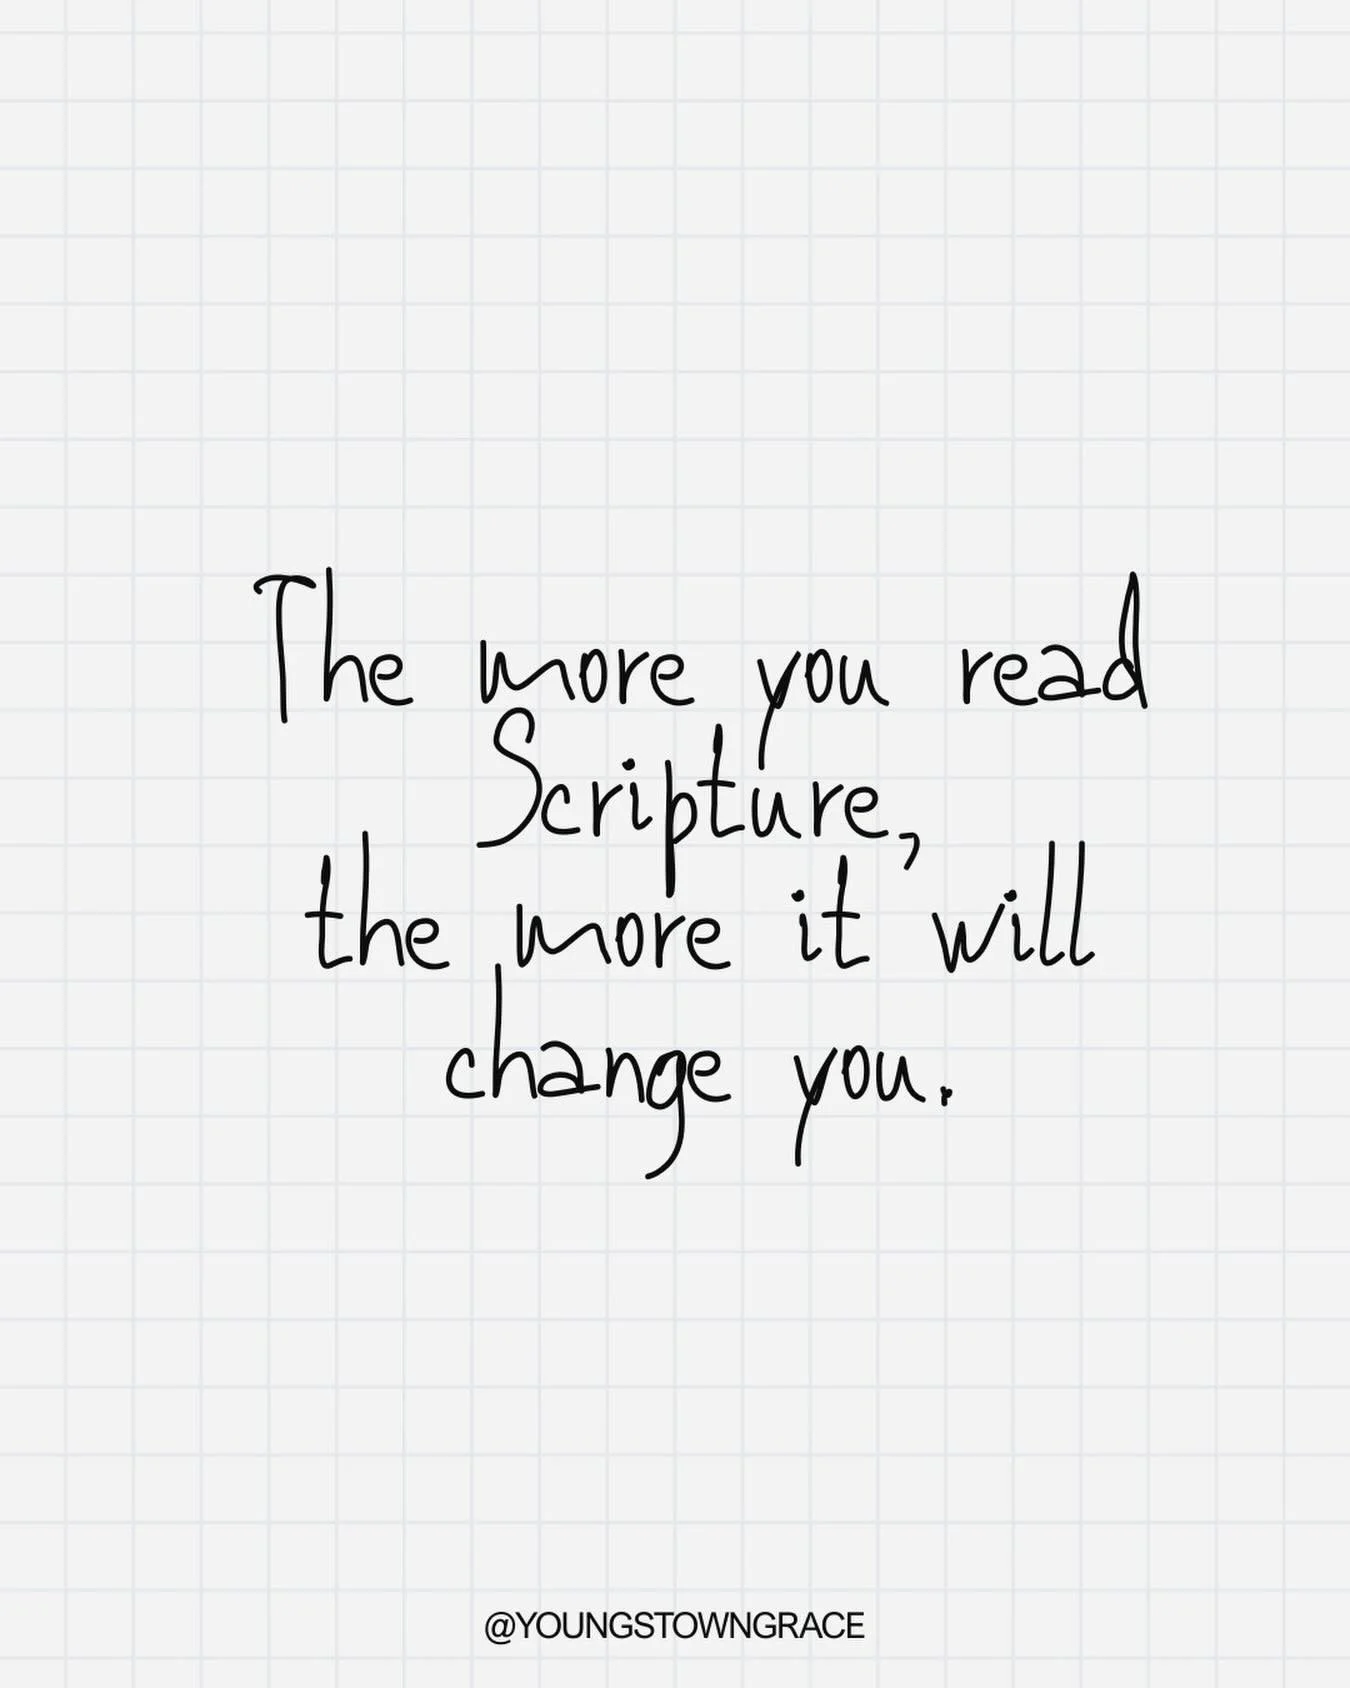 The more you read
Scripture,
the more it will
change you.
@YOUNGSTOWNGRACE